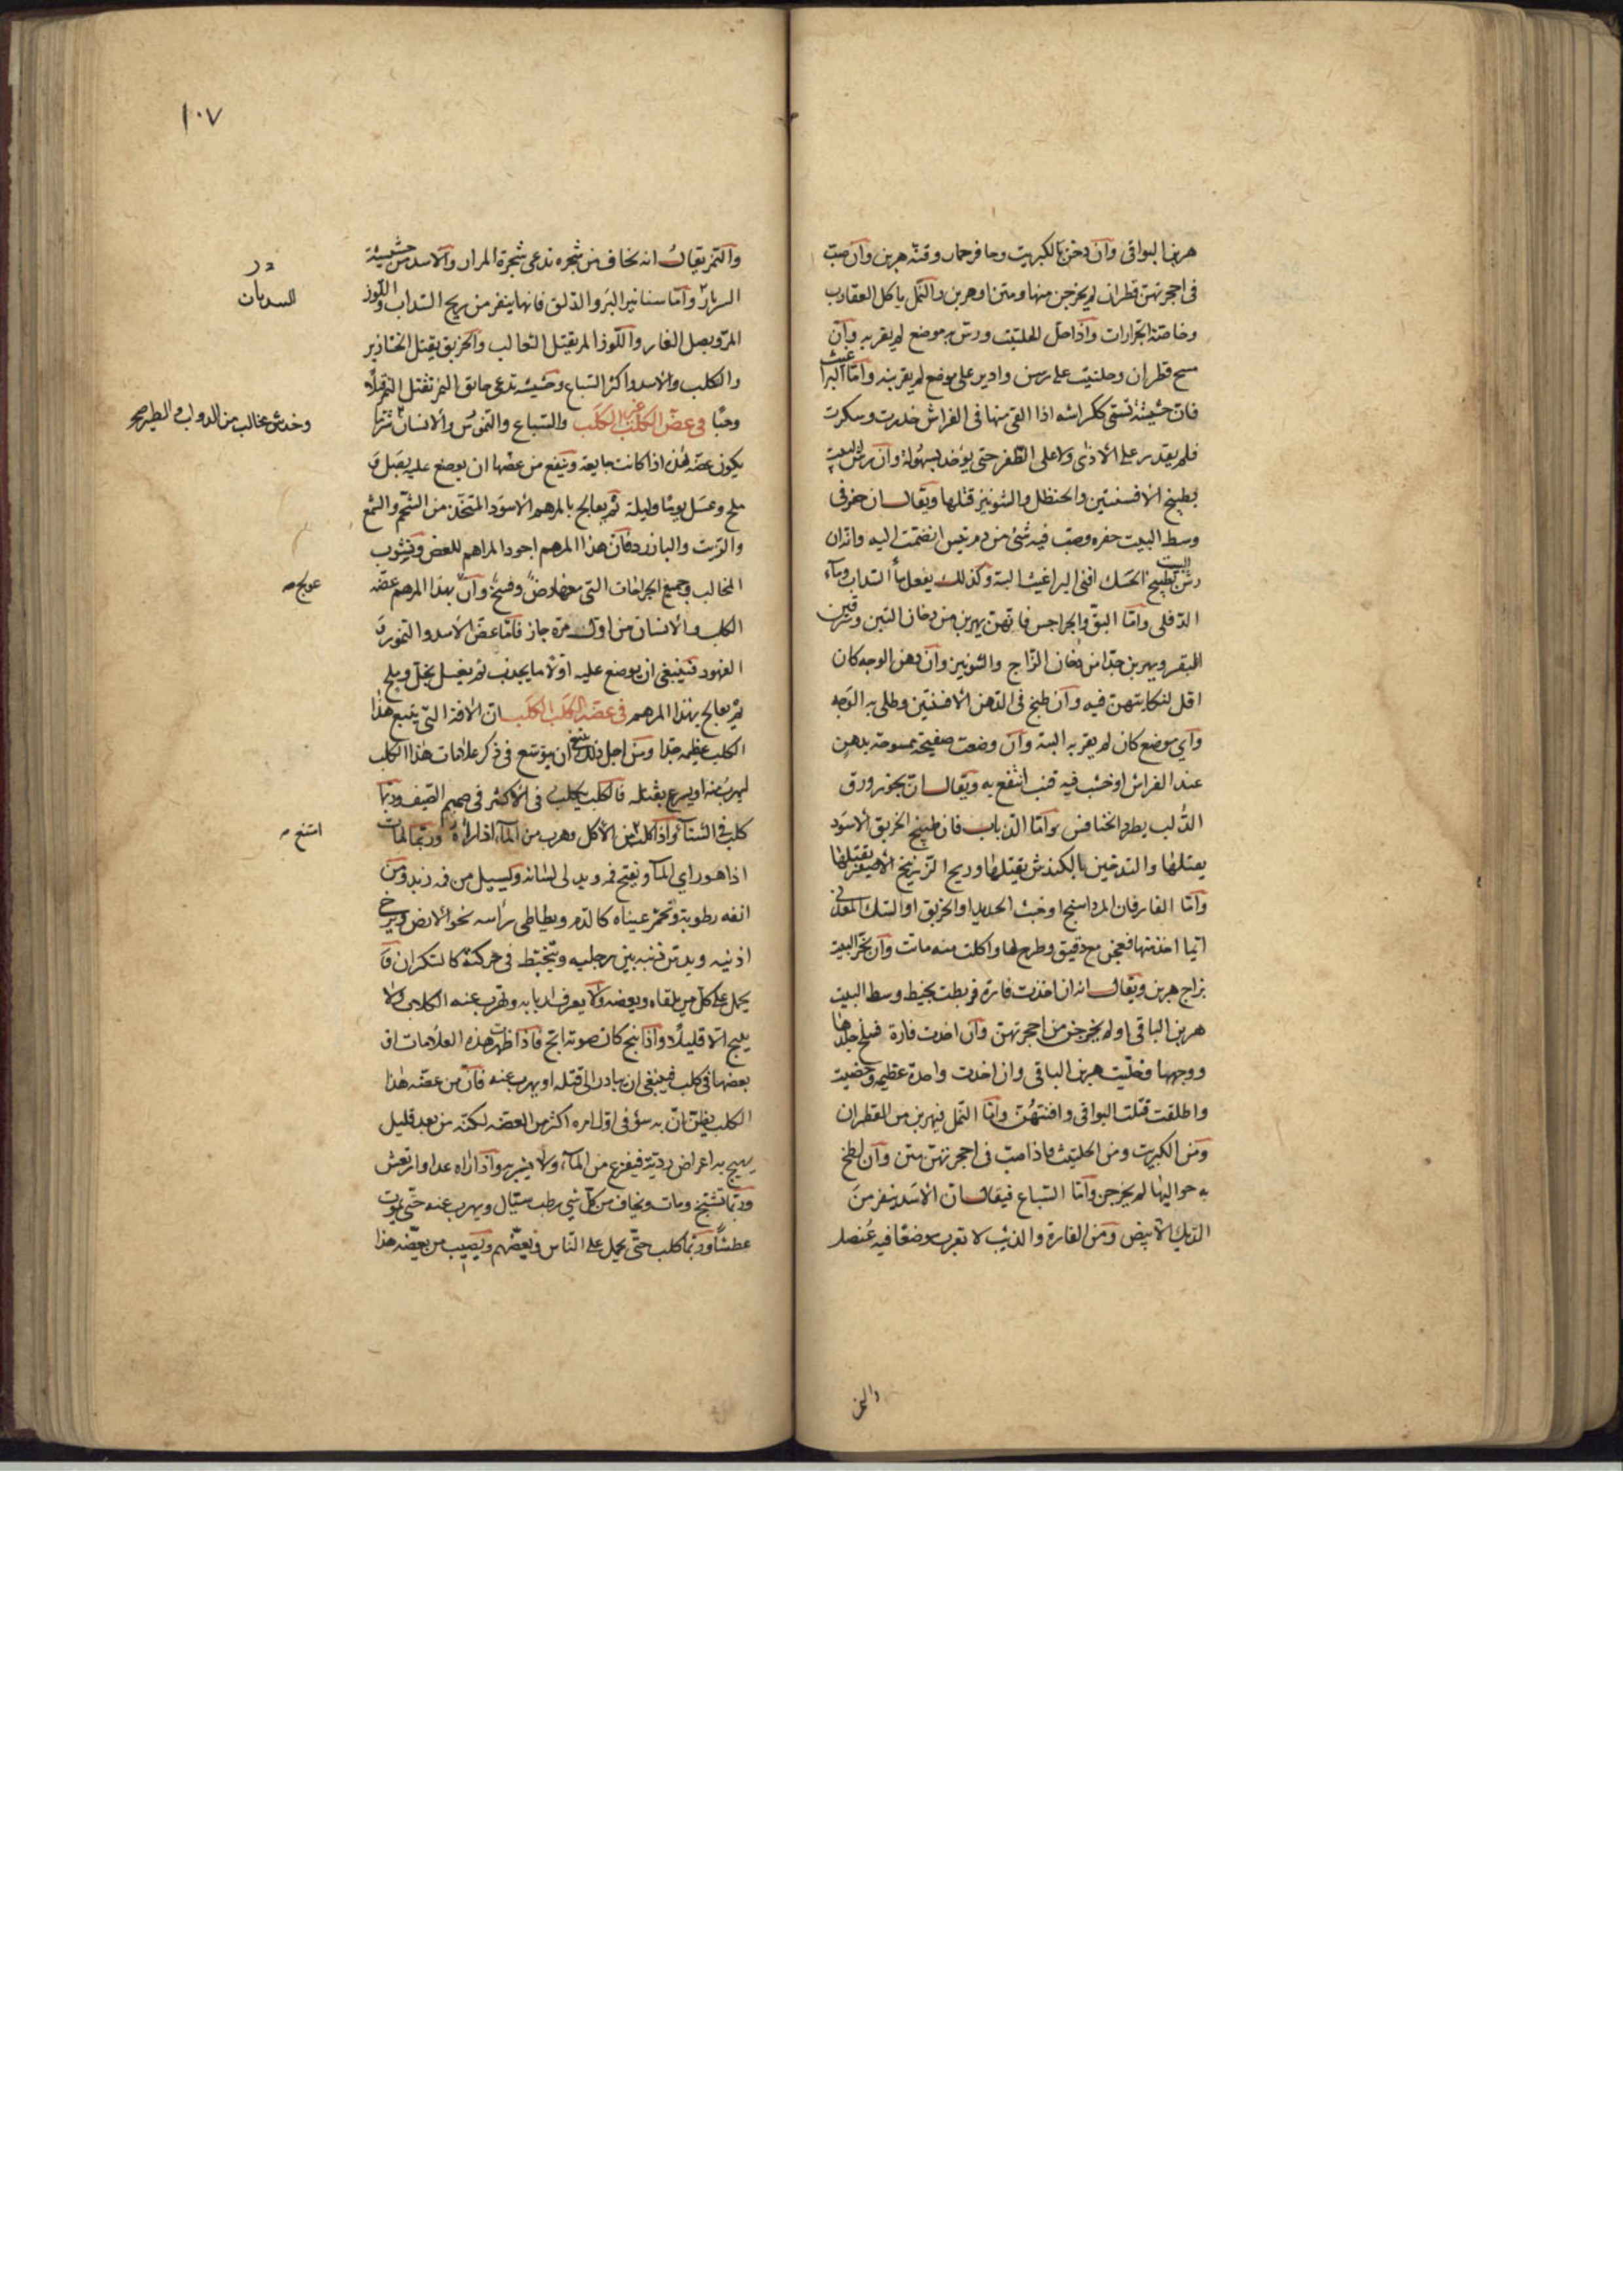 هربن البواقى وان دخن بالكبريت وحافر حمار وقنه هربن وان صب
فى احجرتهن قطران لم يخرجن منها ومتن اوهربن والنمل ياكل العقارب
وخاصة الجرارات واذا حل الحلتيت ورش به موضع لم يقربه وان
مسح قطران وحلتيت على رسن وادير على موضع لم يقربنه واما البراغيث
فان حشيشة تسمى ككراشه اذا القى منها فى الفراش خدرت وسكرت
فلم يقدر على الاذى ولا على الظفر حتى يوخذ بسهولة وان رش البيت
بطبيخ الافسنتين والحنظل والشونيز قتلها ويقال ان حفر فى
وسط البيت حفره وصب فيه شئ من دم تيس انضمت اليه وانه ان
رش البيت بطبيخ الحسك افنى البراغيث البتة وكذلك يفعل ماء السذاب وماء
الدفلى واما البق والجراجس فانهن يهربن من دخان التبن وسرقين
البقر ويهربن جدا من دخان الزاج والشونيز وان دهن الوجه كان
اقل لنكايتهن فيه وان طبخ فى الدهن الافسنتين وطلى به الوجه
واي موضع كان لم يقربه البتة وان وضعت صفيحة ممسوحة بدهن
عند الفراش او خشب فيه قنب انتفع به ويقال ان بخور ورق
الدلب يطرد الخنافس واما الذباب فان طبيخ الخربق الاسود
يقتلها والتدخين بالكندش يقتلها وريح الزرنيخ الاصفر يقتلها
واما الفار فان المرداسنج او خبث الحديد او الخربق او السك المعدنى
ايما اخذ منها فعجن مع دقيق وطرح لها واكلت منه ماتت وان بخر البيت
بزاج هربن ويقال انه ان اخذت فارة فربطت بخيط وسط البيت
هربن الباقى او لم يخرجن من احجرتهن وان اخذت فارة فسلخ جلدها
ووجهها وخليت هربن الباقى وان اخذت واحدة عظيمه وخصيت
واطلقت قتلت البواقى وافنتهن واما النمل فيهربن من القطران
ومن الكبريت ومن الحلتيت فاذا صب فى احجرتهن متن وان لطخ
به حواليها لم يخرجن واما السباع فيقال ان الاسد ينفر من
الديك الابيض ومن الفارة والذيب لا تقرب موضعا فيه عنصل
والنمر
١٠٧
والنمر يقال انه يخاف من شجره تدعى شجرة المرار والاسد من حشيشة
السربان واما سنانير البر والدلق فانها ينفر من ريح السذاب واللوز
المر وبصل الفار واللوز المر يقتل الثعالب والخربق يقتل الخنازير
والكلب والاسد واكثر السباع وحشيشه تدعى خانق النمر تقتل النمر قتلا
وحيا فى عض الكلب غير الكلب والسباع والنموس والانسان شر ما
يكون عضه هذه اذا كانت جايعة وينفع من عضها ان يوضع عليه بصل و
ملح وعسل يوما وليلة ثم يعالج بالمرهم الاسود المتخذ من الشحم والشمع
والزيت والبازرد فان هذا المرهم اجود المراهم للعض ونشوب
المخالب وجميع الجراحات التى معها رض وفسخ وان بهذا المرهم عضه
الكلب والانسان من اول مرة جاز فاما عض الاسد والنمور و
الفهود فينبغى ان يوضع عليه اولا ما يجذب ثم يغسل بخل وملح
ثم يعالج بهذا المرهم فى عضة الكلب الكلب ان الافة التى يتبع هذا
الكلب عظيمه جدا ومن اجل ذلك ينبغى ان يوسع فى ذكر علامات هذا الكلب
ليهرب منه او يسرع بقتله فالكلب يكلب فى الاكثر فى صميم الصيف وربما
كلب فى الشتا واذا كلب من الاكل وهرب من الماء اذا راه وربما مات
اذا هو راى الماء ويفتح فمه ويدلى لسانه ويسيل من فمه زبد ومن
انفه رطوبة وتحمر عيناه كالدم ويطاطى راسه نحو الارض ويرخى
اذنيه ويدس ذنبه بين رجليه ويتخبط فى حركته كالسكران و
يحمل على كل من يلقاه ويعضه ولا يعرف اربابه وتهرب عنه الكلاب ولا
ينبح الا قليلا واذا نبح كان صوته ابح فاذا ظهرت هذه العلامات او
بعضها فى كلب فينبغى ان يبادر الى قتله او يهرب عنه فان من عضه هذا
الكلب يظن ان به سؤ فى اول امره اكثر من العضه لكنه من بعد قليل
يهيج به اعراض ردية فيفزع من الماء ولا يشربه واذا راه عدا وارتعش
وربما تشنج ومات ويخاف من كل شي رطب سيال ويهرب عنه حتى يموت
عطشا وربما كلب حتى يحمل على الناس ويعضهم ويصيب من يعضه هذا
السربان
وخدش مخالب من الدواب والطير
عولج صح
امتنع